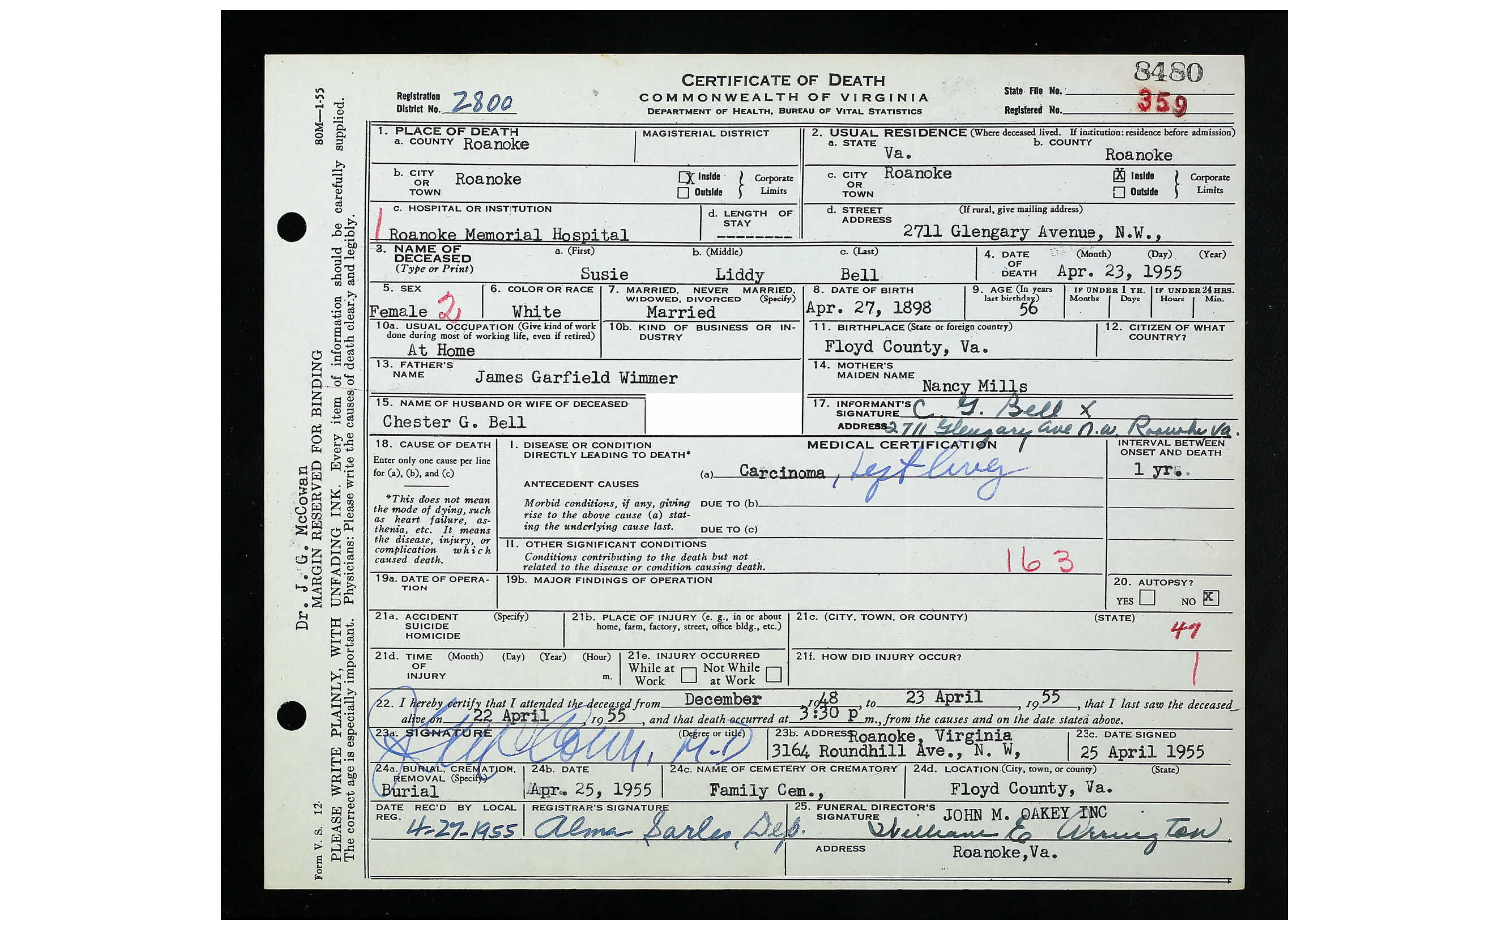 8480
CERTIFICATE OF DEATH
COMMONWEALTH OF VIRGINIA
DEPARTMENT OF HEALTH, BUREAU OF VITAL STATISTICS
Registration District No. 2800
State File No.
Registered No. 359
80M—1-55
Dr. J. G. McCowan
MARGIN RESERVED FOR BINDING
PLEASE WRITE PLAINLY, WITH UNFADING INK. Every item of information should be carefully supplied.
The correct age is especially important. Physicians: Please write the causes of death clearly and legibly.
Form V. S. 12
1. PLACE OF DEATH
a. COUNTY Roanoke
MAGISTERIAL DISTRICT
2. USUAL RESIDENCE (Where deceased lived. If institution: residence before admission)
a. STATE Va.
b. COUNTY Roanoke
b. CITY OR TOWN Roanoke
X Inside Outside Corporate Limits
c. CITY OR TOWN Roanoke
X Inside Outside Corporate Limits
c. HOSPITAL OR INSTITUTION
1 Roanoke Memorial Hospital
d. LENGTH OF STAY
--------
d. STREET ADDRESS (If rural, give mailing address)
2711 Glengary Avenue, N.W.,
3. NAME OF DECEASED (Type or Print)
a. (First) Susie
b. (Middle) Liddy
c. (Last) Bell
4. DATE OF DEATH (Month) (Day) (Year)
Apr. 23, 1955
5. SEX Female 2
6. COLOR OR RACE White
7. MARRIED, NEVER MARRIED, WIDOWED, DIVORCED (Specify) Married
8. DATE OF BIRTH Apr. 27, 1898
9. AGE (In years last birthday) 56
IF UNDER 1 YR. Months Days
IF UNDER 24 HRS. Hours Min.
10a. USUAL OCCUPATION (Give kind of work done during most of working life, even if retired) At Home
10b. KIND OF BUSINESS OR INDUSTRY
11. BIRTHPLACE (State or foreign country) Floyd County, Va.
12. CITIZEN OF WHAT COUNTRY?
13. FATHER'S NAME James Garfield Wimmer
14. MOTHER'S MAIDEN NAME Nancy Mills
15. NAME OF HUSBAND OR WIFE OF DECEASED
Chester G. Bell
17. INFORMANT'S SIGNATURE C. G. Bell X
ADDRESS 2711 Glengary Ave N.W. Roanoke Va.
18. CAUSE OF DEATH
Enter only one cause per line for (a), (b), and (c)
*This does not mean the mode of dying, such as heart failure, asthenia, etc. It means the disease, injury, or complication which caused death.
MEDICAL CERTIFICATION
I. DISEASE OR CONDITION DIRECTLY LEADING TO DEATH*
(a) Carcinoma, left lung
INTERVAL BETWEEN ONSET AND DEATH
1 yr.
ANTECEDENT CAUSES
Morbid conditions, if any, giving rise to the above cause (a) stating the underlying cause last.
DUE TO (b)
DUE TO (c)
II. OTHER SIGNIFICANT CONDITIONS
Conditions contributing to the death but not related to the disease or condition causing death.
163
19a. DATE OF OPERATION
19b. MAJOR FINDINGS OF OPERATION
20. AUTOPSY?
YES NO X
21a. ACCIDENT SUICIDE HOMICIDE (Specify)
21b. PLACE OF INJURY (e. g., in or about home, farm, factory, street, office bldg., etc.)
21c. (CITY, TOWN, OR COUNTY) (STATE)
47
21d. TIME OF INJURY (Month) (Day) (Year) (Hour) m.
21e. INJURY OCCURRED
While at Work Not While at Work
21f. HOW DID INJURY OCCUR?
1
22. I hereby certify that I attended the deceased from December, 1948 to 23 April, 1955, that I last saw the deceased
alive on 22 April, 1955, and that death occurred at 3:30 p m., from the causes and on the date stated above.
23a. SIGNATURE (Degree or title) M.D
23b. ADDRESS Roanoke, Virginia
3164 Roundhill Ave., N. W,
23c. DATE SIGNED
25 April 1955
24a. BURIAL, CREMATION, REMOVAL (Specify) Burial
24b. DATE Apr. 25, 1955
24c. NAME OF CEMETERY OR CREMATORY Family Cem.,
24d. LOCATION (City, town, or county) (State) Floyd County, Va.
DATE REC'D BY LOCAL REG. 4-27-1955
REGISTRAR'S SIGNATURE Alma Sarles, Dep.
25. FUNERAL DIRECTOR'S SIGNATURE JOHN M. OAKEY INC
William E Arrington
ADDRESS Roanoke,Va.